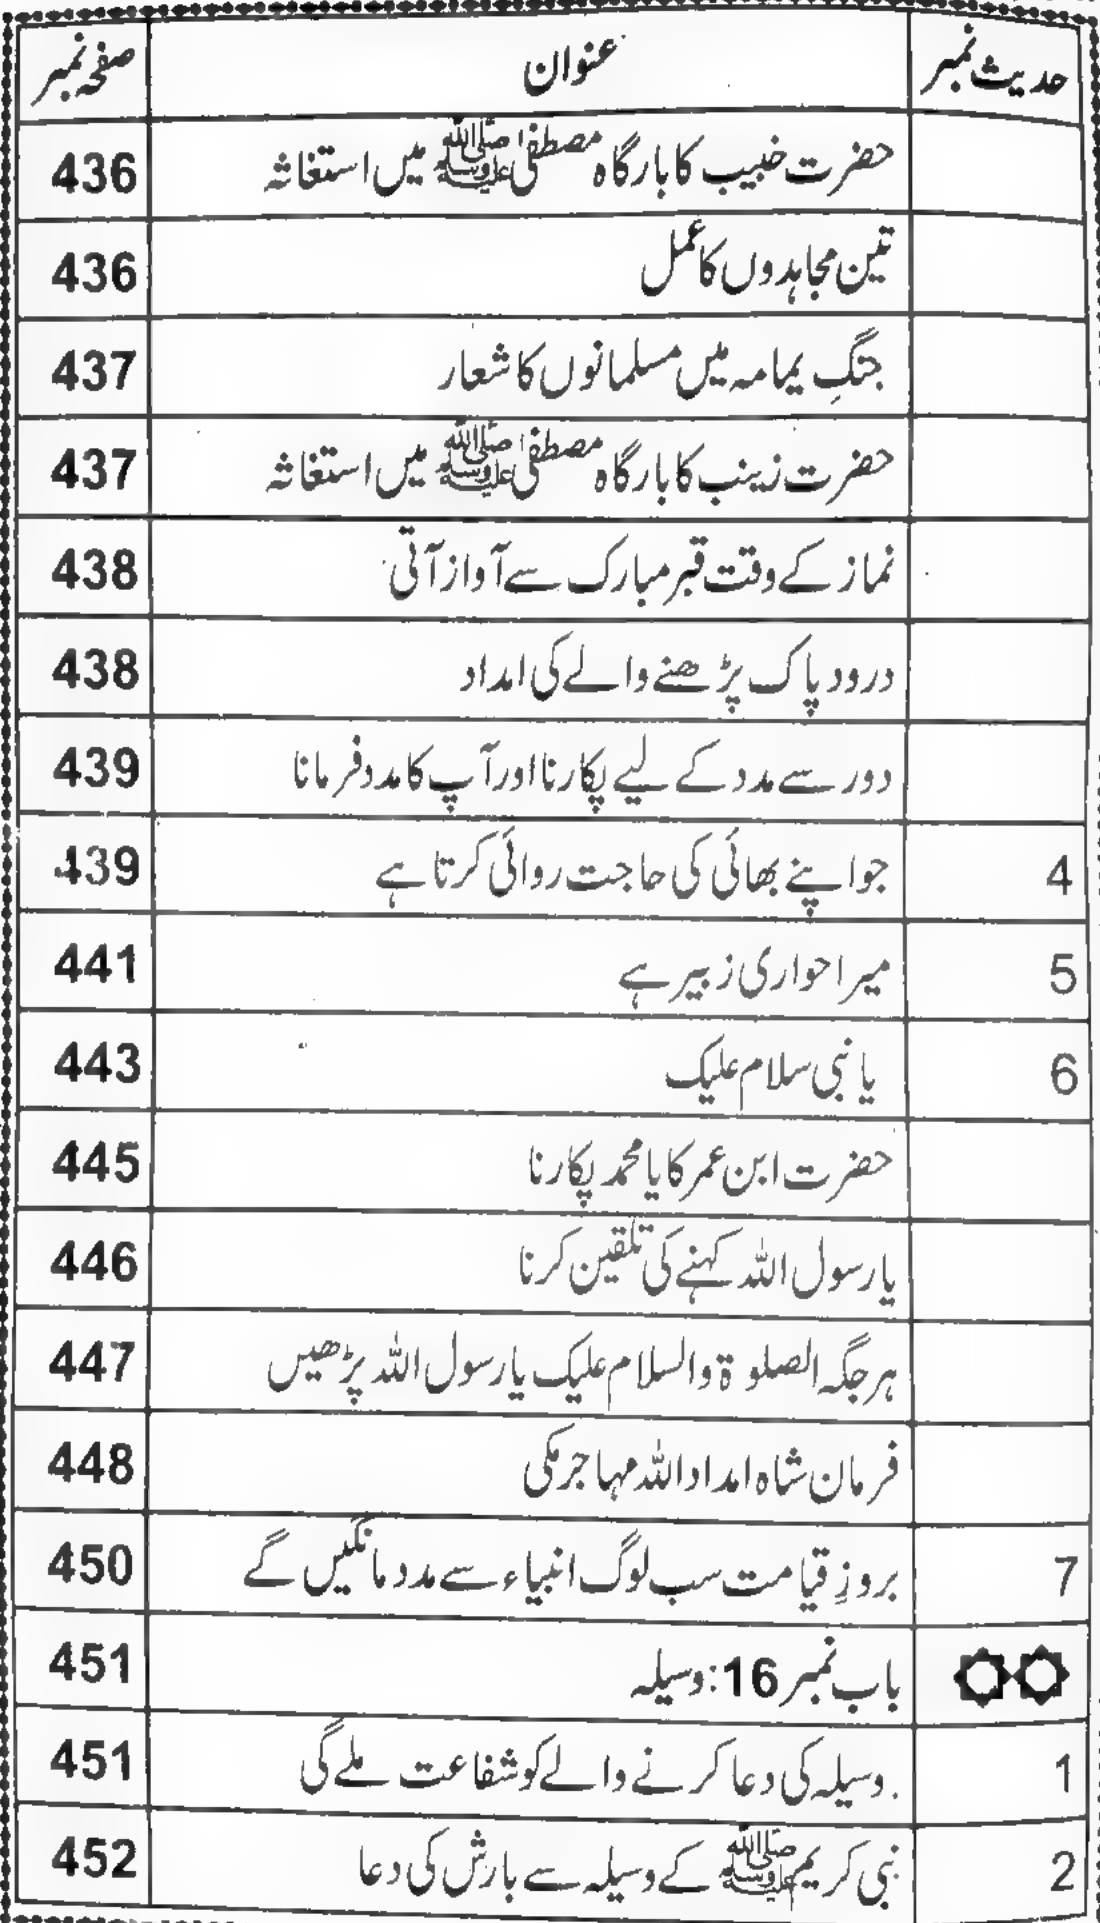 حدیث نمبر عنوان صفحہ نمبر
حضرت خبیب کا بارگاہ مصطفیٰ ﷺ میں استغاثہ 436
تین مجاہدوں کا عمل 436
جنگِ یمامہ میں مسلمانوں کا شعار 437
حضرت زینب کا بارگاہ مصطفیٰ ﷺ میں استغاثہ 437
نماز کے وقت قبر مبارک سے آواز آتی 438
درود پاک پڑھنے والے کی امداد 438
دور سے مدد کے لیے پکارنا اور آپ کا مدد فرمانا 439
4 جو اپنے بھائی کی حاجت روائی کرتا ہے 439
5 میرا حواری زبیر ہے 441
6 یا نبی سلام علیک 443
حضرت ابن عمر کا یا محمد پکارنا 445
یا رسول اللہ کہنے کی تلقین کرنا 446
ہر جگہ الصلوۃ والسلام علیک یا رسول اللہ پڑھیں 447
فرمان شاہ امداد اللہ مہاجر مکی 448
7 بروزِ قیامت سب لوگ انبیاء سے مدد مانگیں گے 450
باب نمبر 16: وسیلہ 451
1 وسیلہ کی دعا کرنے والے کو شفاعت ملے گی 451
2 نبی کریم ﷺ کے وسیلہ سے بارش کی دعا 452